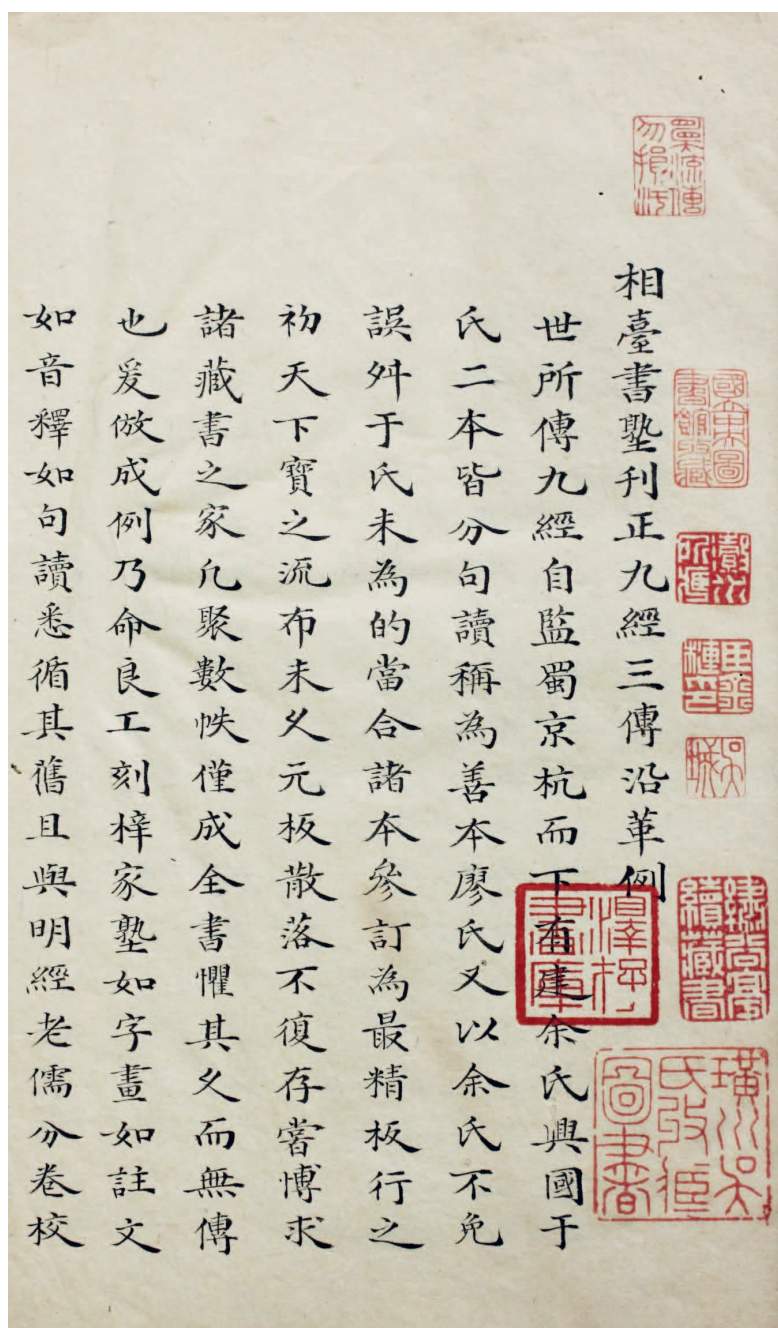 相臺書塾刊正九經三傳沿革例
世所傳九經自監蜀京杭而下有建余氏興國于
氏二本皆分句讀稱為善本廖氏又以余氏不免
誤舛于氏未為的當合諸本參訂為最精板行之
初天下寶之流布未久元板散落不復存嘗博求
諸藏書之家凡聚數帙僅成全書懼其久而無傳
也爰倣成例乃命良工刻梓家塾如字畫如註文
如音釋如句讀悉循其舊且與明經老儒分卷校
國立中央圖書館收藏
璜川吳氏收藏圖書